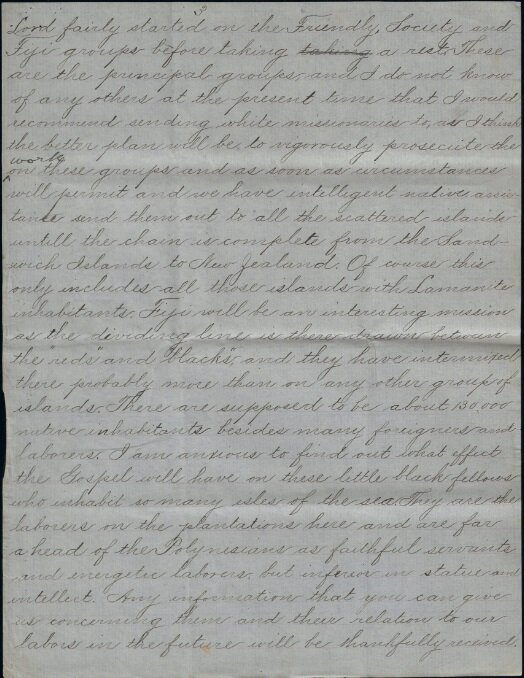 3
Lord fairly started on the Friendly, Society and
Fiji groups before taking taking a rest. These
are the principal groups, and I do not know
of any others at the present time that I would
recommend sending white missionaries to, as I think
the better plan will be to vigorously prosecute the
work
on these groups and as soon as circumstances
will permit and we have intelligent native assis-
tance send them out to all the scattered islands
untill the chain is complete from the Sand-
wich Islands to New Zealand. Of course this
only includes all those islands with Lamanite
inhabitants. Fiji will be an interesting mission
as the dividing line is there drawn between
the "reds" and "blacks", and they have intermixed
there probably more than on any other group of
islands. There are supposed to be about 130 000
native inhabitants besides many foreigners and
laborers. I am anxious to find out what effect
the Gospel will have on these little black fellows
who inhabit so many isles of the sea. They are the
laborers on the plantations here and are far
ahead of the Polynesians as faithful servants
and energetic laborers, but inferior in statue and
intellect. Any information that you can give
us concerning them and their relation to our
labors in the future will be thankfully received.